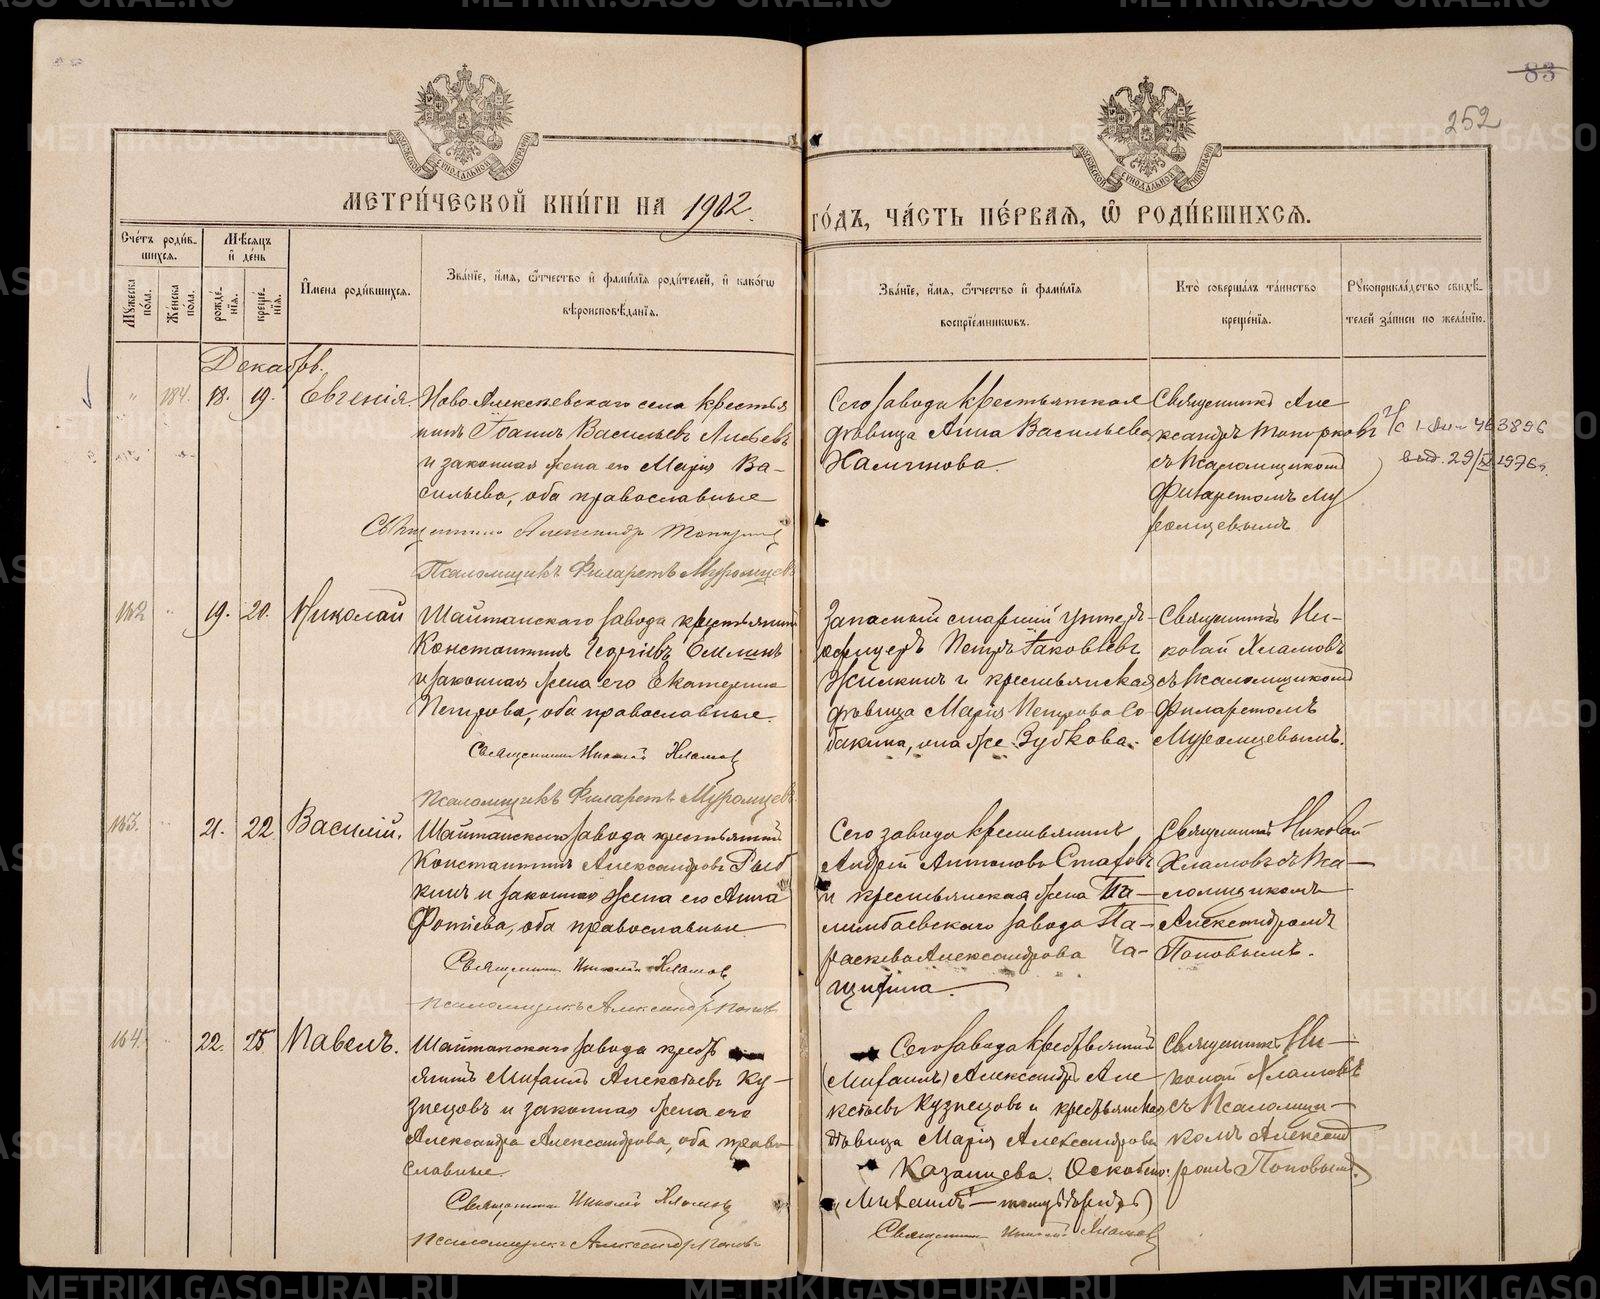 83
252
МЕТРИ́ЧЕСКОЙ КНИ́ГИ НА 1902.
ГО́ДЪ, ЧА́СТЬ ПЕ́РВАЯ, Ѿ РОДИ́ВШИХСЯ.
Сче́тъ роди́в-
шихся.
Мѣ́сяцъ
и҆ де́нь
Мꙋ́жеска по́ла.
Же́нска по́ла.
рожде́-
нїѧ.
креще́-
нїѧ.
И҆мена роди́вшихся.
Зва́нїе, и҆́мѧ, ѻ҆́тчество и҆ фами́лїѧ роди́телей, и҆ како́гѡ
вѣроисповѣ́данїѧ.
Зва́нїе, и҆́мѧ, ѻ҆́тчество и҆ фами́лїѧ
воспрїе́мникѡвъ.
Кто̀ соверша́лъ та́инство
креще́нїѧ.
Рꙋкоприкла́дство свидѣ́-
телей за́писи по жела́нїю.
Декабрь.
184. 18. 19. Евгенія.
Ново Алексѣевскаго села крестья
нинъ Іоаннъ Васильевъ
и законная жена его Марія Ва-
сильева, оба православные
Священникъ Александръ Топорковъ
Псаломщикъ Филаретъ Муромцевъ
Сего завода крестьянская
дѣвица Анна Васильева
Священникъ Але
ксандръ Топорковъ
съ псаломщикомъ
Филаретомъ Му
ромцевымъ
463896
29/ 1976г.
162 19. 20. Николай
Шайтанскаго завода крестьянинъ
Константинъ Георгіевъ
и законная жена его Екатерина
Петрова, оба православные.
Священникъ Николай Хламовъ
Псаломщикъ Филаретъ Муромцевъ
Запасный старшій унтеръ-
офицеръ Петръ Іаковлевъ
Жилкинъ и крестьянская
дѣвица Марія Петрова Со
бакина, она же Зубкова.
Священникъ Ни-
колай Хламовъ
съ псаломщикомъ
Филаретомъ
Муромцевымъ.
163. 21. 22 Василій.
Шайтанскаго завода крестьянинъ
Константинъ Александровъ Рыб
кинъ и законная жена его Анна
Фотіева, оба православные
Священникъ Николай Хламовъ
псаломщикъ Александръ Поповъ
Сего завода крестьянинъ
Андрей Антоновъ
и крестьянская жена Би-
лимбаевскаго завода Па-
раскева Александрова Ча-
щихина.
Священникъ Николай
Хламовъ съ пса-
ломщикомъ
Александромъ
Поповымъ.
164. 22. 25 Павелъ.
Шайтанскаго завода кресть
янинъ Михаилъ Алексѣевъ Ку-
знецовъ и законная жена его
Александра Александрова, оба право-
славные.
Священникъ Николай Хламовъ
псаломщикъ Александръ Поповъ
Сего завода крестьянинъ
(Михаилъ) Александръ Але
ксѣевъ Кузнецовъ и крестьянская
дѣвица Марія Александрова
Казанцева.
Михаилъ
Священникъ Николай Хламовъ
Священникъ Ни-
колай Хламовъ
съ псаломщи-
комъ Александ
ромъ Поповымъ.